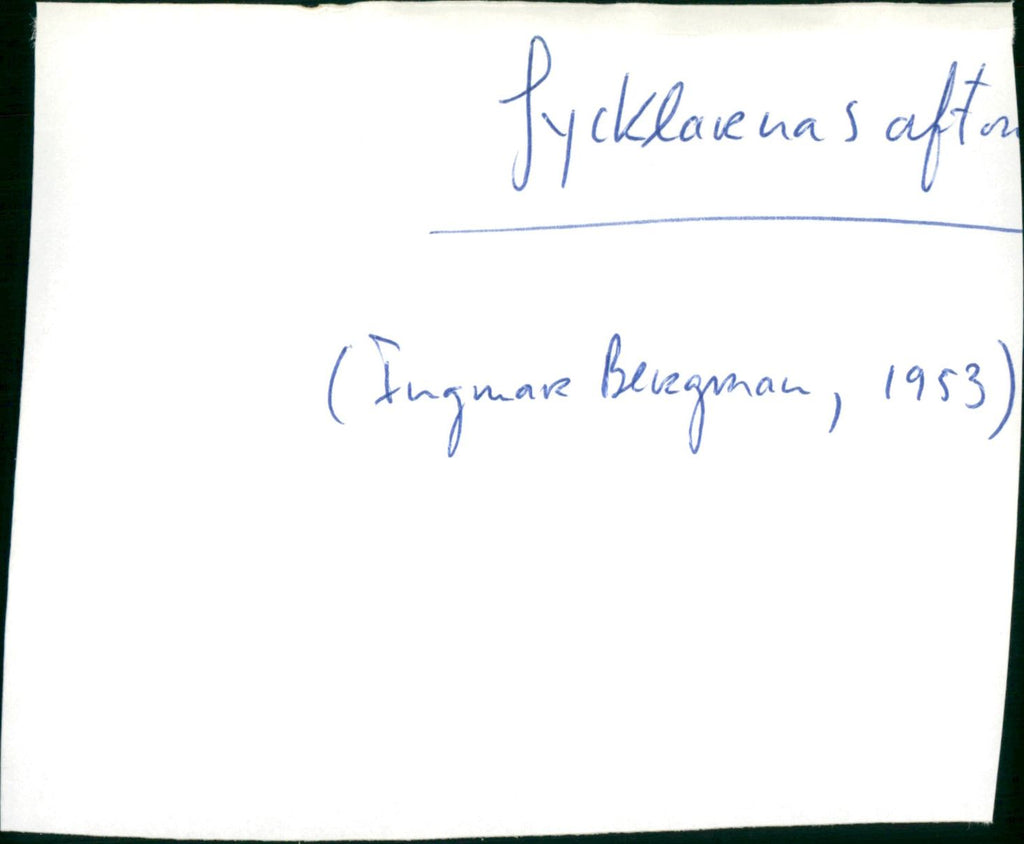 Gycklarenas afton
(Ingmar Bergman, 1953)